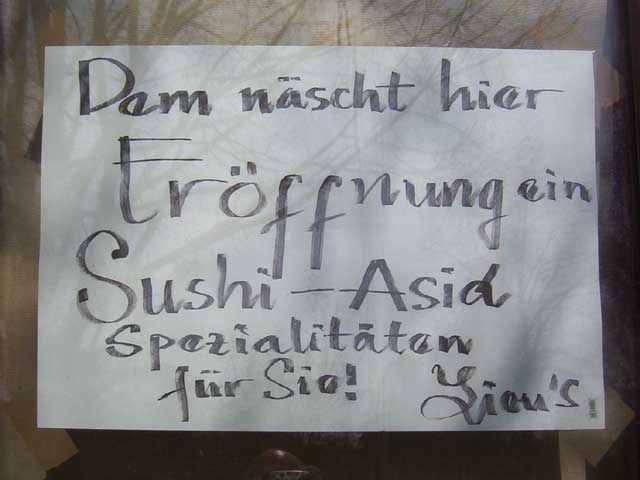 Dem näscht hier
Eröffnung ein
Sushi-Asia
Spezialitäten
für Sie! Lieu's